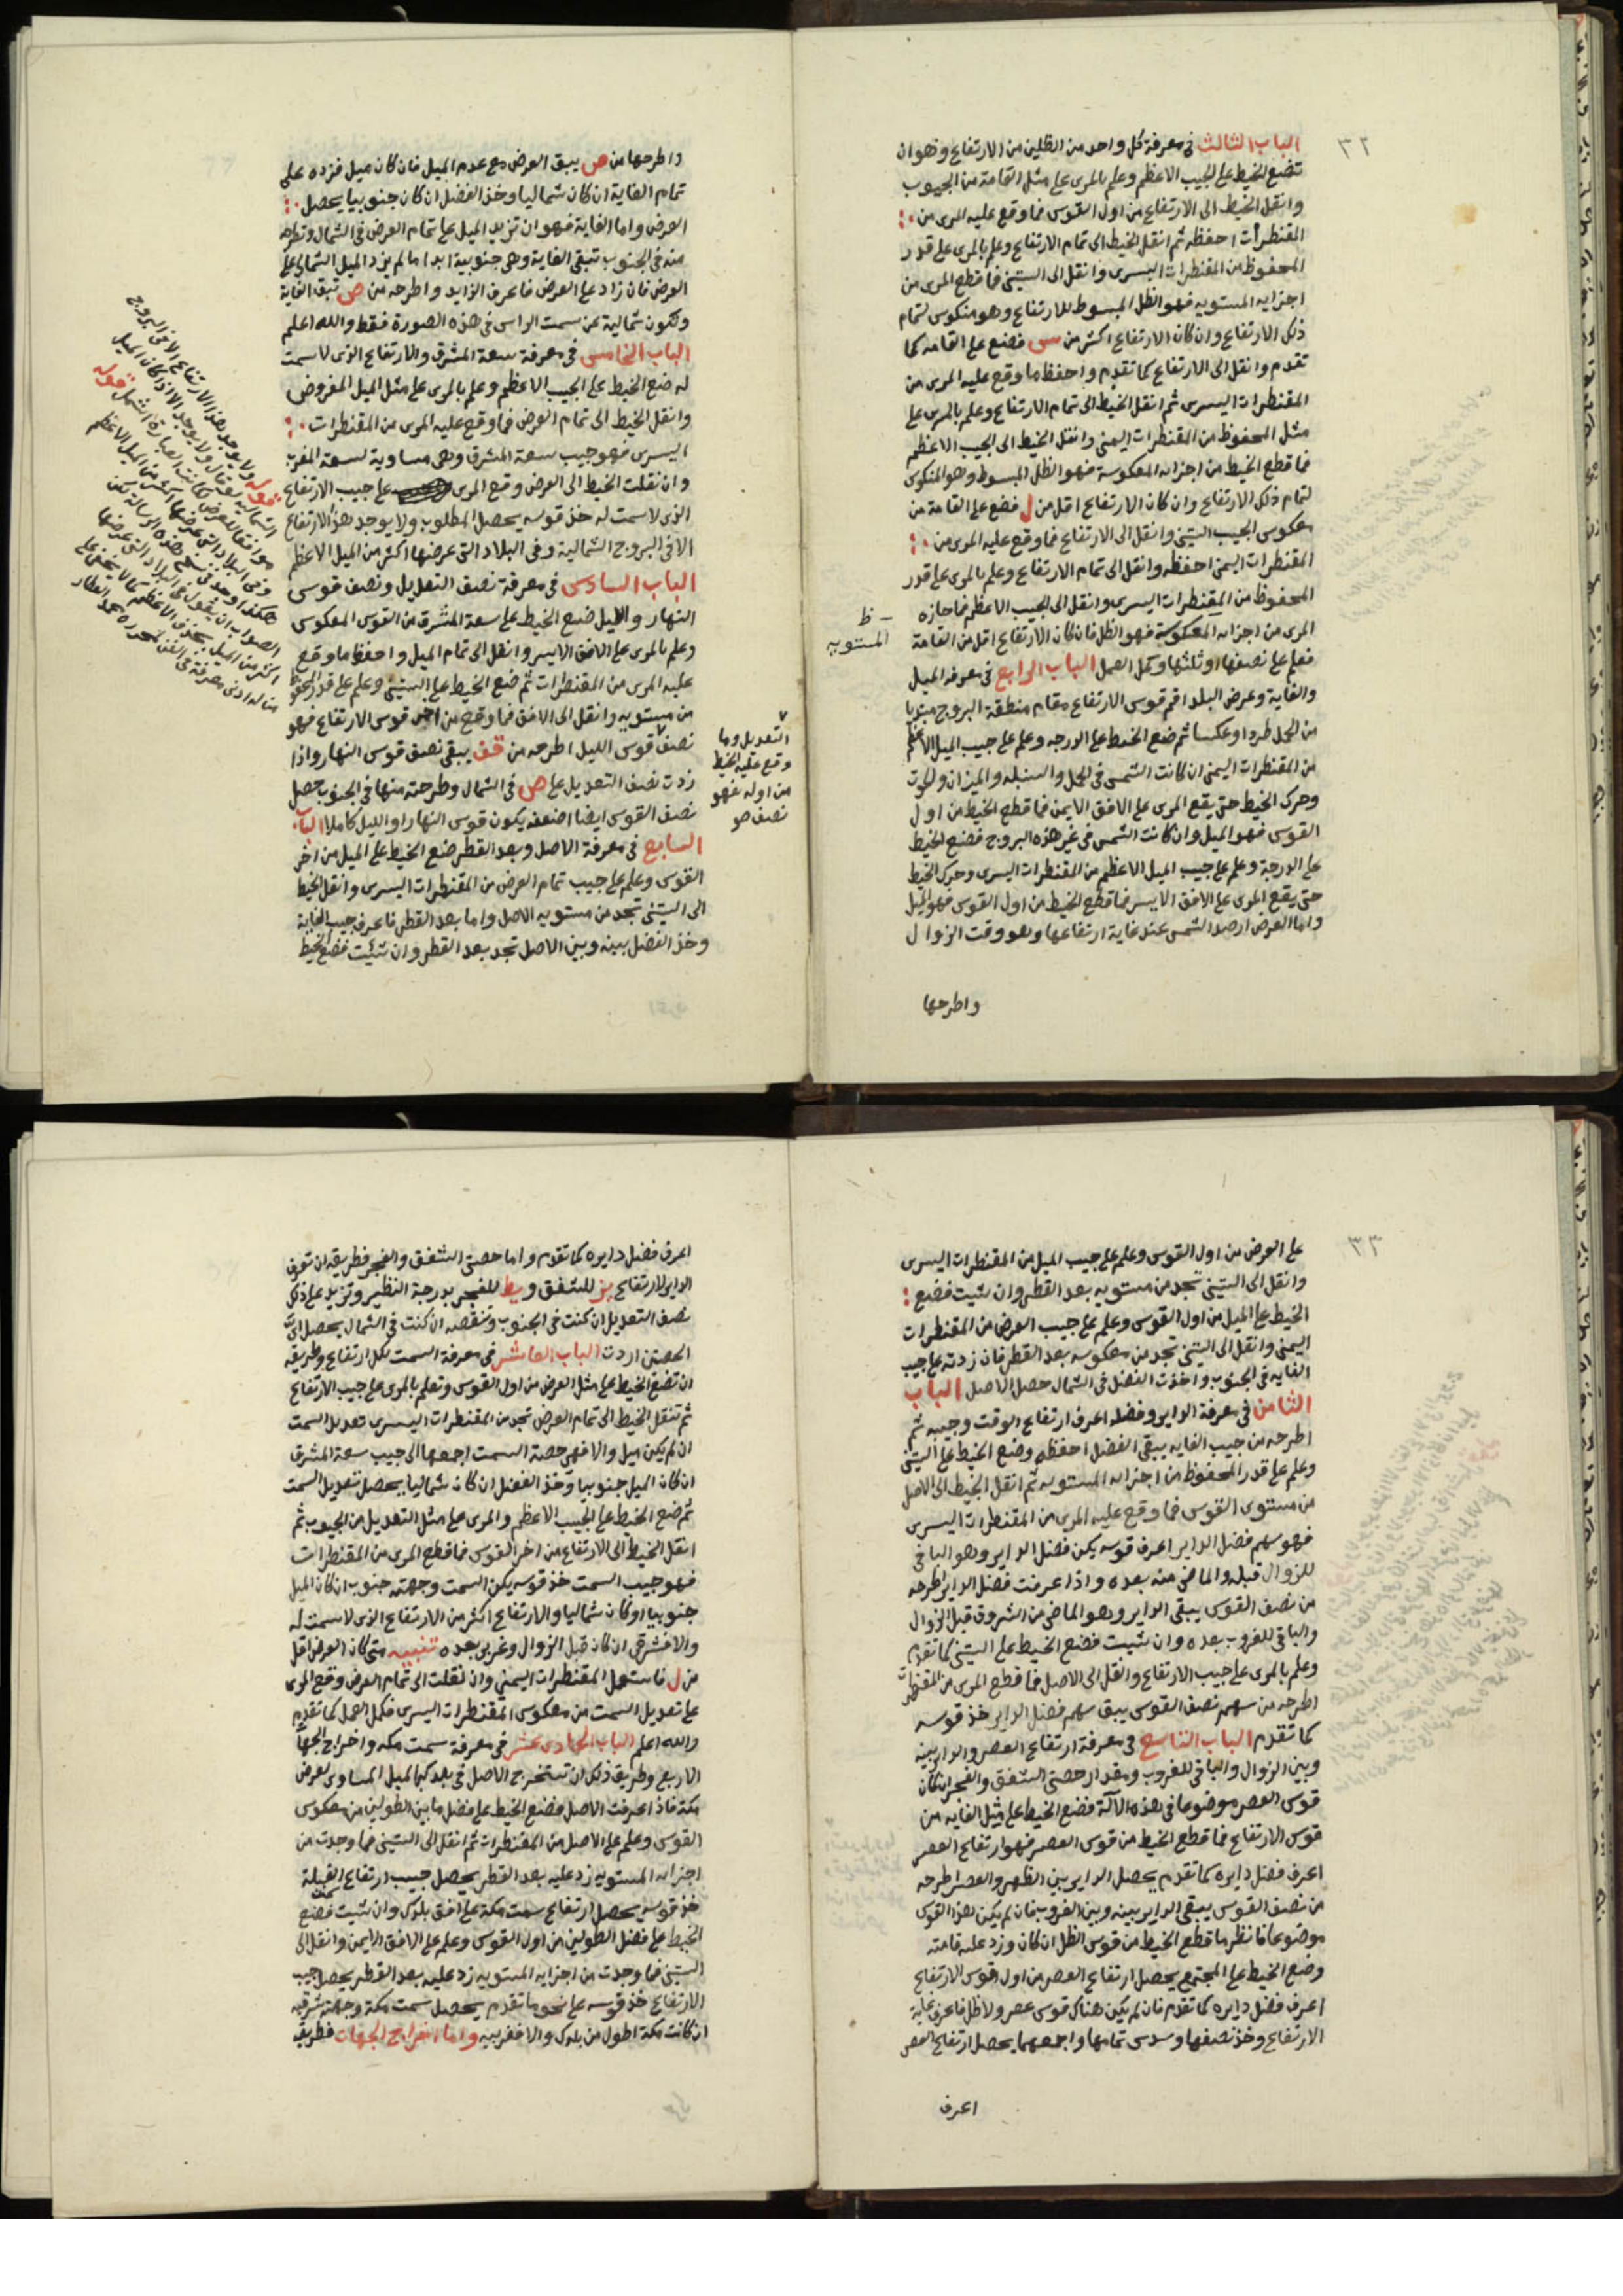 ٣٢
الباب الثالث في معرفة كل واحد من الظلين من الارتفاع وهو ان
تضع الخيط على الجيب الاعظم وعلم بالمرى على مثل القامة من الجيوب
وانقل الخيط الى الارتفاع من اول القوس فما وقع عليه المرى من
المقنطرات احفظه ثم انقل الخيط الى تمام الارتفاع وعلم بالمرى على قدر
المحفوظ من المقنطرات اليسرى وانقل الى الستيني فما قطع المرى من
اجزايه المستويه فهو الظل المبسوط للارتفاع وهو منكوس لتمام
ذلك الارتفاع وان كان الارتفاع اكثر من س فضع على القامه كما
تقدم وانقل الى الارتفاع كما تقدم واحفظ ما وقع عليه المرى من
المقنطرات اليسرى ثم انقل الخيط الى تمام الارتفاع وعلم بالمرى على
مثل المحفوظ من المقنطرات اليمنى وانقل الخيط الى الجيب الاعظم
فما قطع الخيط من اجزايه المعكوسة فهو الظل المبسوط وهو المنكوس
لتمام ذلك الارتفاع وان كان الارتفاع اقل من ل فضع على القامة من
معكوس الجيب الستيني وانقل الى الارتفاع فما وقع عليه المرى من
المقنطرات اليمنى احفظه وانقل الى تمام الارتفاع وعلم بالمرى على قدر
المحفوظ من المقنطرات اليسرى وانقل الى الجيب الاعظم فما حازه
المرى من اجزايه المعكوسة فهو الظل فان كان الارتفاع اقل من القامة
ظ
المستويه
فعلم على نصفها او ثلثها وكمل العمل الباب الرابع في معرفه الميل
والغاية وعرض البلد اقم قوس الارتفاع مقام منطقة البروج مبتديا
من الحمل طردا وعكسا ثم ضع الخيط على الدرجه وعلم على جيب الميل الاعظم
من المقنطرات اليمنى ان كانت الشمس في الحمل والسنبله والميزان والحوت
وحرك الخيط حتى يقع المرى على الافق الايمن فما قطع الخيط من اول
القوس فهو الميل وان كانت الشمس في غير هذه البروج فضع الخيط
على الدرجة وعلم على جيب الميل الاعظم من المقنطرات اليسرى وحرك الخيط
حتى يقع المرى على الافق الايسر فما قطع الخيط من اول القوس فهو الميل
واما العرض ارصد الشمس عند غاية ارتفاعها وهو وقت الزوال
واطرحها
واطرحها من ص يبق العرض مع عدم الميل فان كان ميل فزده على
تمام الغاية ان كان شماليا وخذ الفضل ان كان جنوبيا يحصل
العرض واما الغاية فهو ان تزيد الميل على تمام العرض في الشمال وتطرحه
منه في الجنوب تبقى الغاية وهي جنوبية ابدا ما لم يزد الميل الشمالي على
العرض فان زاد على العرض فاعرف الزايد واطرحه من ص تبق الغاية
وتكون شمالية عن سمت الراس في هذه الصورة فقط والله اعلم
الباب الخامس في معرفة سعة المشرق والارتفاع الذى لا سمت
له ضع الخيط على الجيب الاعظم وعلم بالمرى على مثل الميل المفروض
وانقل الخيط الى تمام العرض فما وقع عليه المرى من المقنطرات
اليسرى فهو جيب سعة المشرق وهي مساوية لسعة المغرب
وان نقلت الخيط الى العرض وقع المرى على جيب الارتفاع
الذى لا سمت له خذ قوسه يحصل المطلوب ولا يوجد هذا الارتفاع
الا في البروج الشمالية وفي البلاد التي عرضها اكثر من الميل الاعظم
الباب السادس في معرفة نصف التعديل ونصف قوس
النهار والليل ضع الخيط على سعة المشرق من القوس المعكوس
وعلم بالمرى على الافق الايسر وانقل الى تمام الميل واحفظ ما وقع
عليه المرى من المقنطرات ثم ضع الخيط على الستيني وعلم على قدر المحفوظ
من مستويه وانقل الى الافق فما وقع من اخر قوس الارتفاع فهو
نصف قوس الليل اطرحه من قف يبقى نصف قوس النهار واذا
زدت نصف التعديل على ص في الشمال وطرحته منها في الجنوب حصل
نصف القوس ايضا اضعفه يكون قوس النهار او الليل كاملا الباب
السابع في معرفة الاصل وبعد القطر ضع الخيط على الميل من اخر
القوس وعلم على جيب تمام العرض من المقنطرات اليسرى وانقل الخيط
الى الستيني تجد من مستويه الاصل واما بعد القطر فاعرف جيب الغاية
وخذ الفضل بينه وبين الاصل تجد بعد القطر وان شئت فضع الخيط
التعديل وما
وقع عليه الخيط
من اوله فهو
نصف
قوله ولا يوجد هذا الارتفاع الا في البروج
٣٣
على العرض من اول القوس وعلم على جيب الميل من المقنطرات اليسرى
وانقل الى الستيني تجد من مستويه بعد القطر وان شيت فضع
الخيط على الميل من اول القوس وعلم على جيب العرض من المقنطرات
اليمنى وانقل الى الستيني تجد من معكوسه بعد القطر فان زدته على جيب
الغايه في الجنوب واخذت الفضل في الشمال حصل الاصل الباب
الثامن في معرفة الداير وفضله اعرف ارتفاع الوقت وجيبه ثم
اطرحه من جيب الغايه يبقى الفضل احفظه وضع الخيط على الستيني
وعلم على قدر المحفوظ من اجزايه المستويه ثم انقل الخيط الى الاصل
من مستوى القوس فما وقع عليه المرى من المقنطرات اليسرى
فهو سهم فضل الداير اعرف قوسه يكن فضل الداير وهو الباقي
للزوال قبله والماضي منه بعده واذا عرفت فضل الداير اطرحه
من نصف القوس يبقى الداير وهو الماضي من الشروق قبل الزوال
والباقي للغروب بعده وان شيت فضع الخيط على الستيني كما تقدم
وعلم بالمرى على جيب الارتفاع وانقل الى الاصل فما قطع المرى من المقنطرات
اطرحه من سهم نصف القوس يبق سهم فضل الداير خذ قوسه
كما تقدم الباب التاسع في معرفة ارتفاع العصر والداير بينه
وبين الزوال والباقي للغروب ومقدار حصتي الشفق والفجر ان كان
قوس العصر موضوعا في هذه الآلة فضع الخيط على مثل الغايه من
قوس الارتفاع فما قطع الخيط من قوس العصر فهو ارتفاع العصر
اعرف فضل دايره كما تقدم يحصل الداير بين الظهر والعصر اطرحه
من نصف القوس يبقى الداير بينه وبين الغروب فان لم يكن هذا القوس
موضوعا فانظر ما قطع الخيط من قوس الظل ان كان وزد عليه قامته
وضع الخيط على المجتمع يحصل ارتفاع العصر من اول قوس الارتفاع
اعرف فضل دايره كما تقدم فان لم يكن هناك قوس عصر ولا ظل فاعرف غاية
الارتفاع وخذ نصفها وسدس تمامها واجمعهما يحصل ارتفاع العصر
اعرف
اعرف فضل دايره كما تقدم واما حصتي الشفق والفجر فطريقه ان تعرف
الداير لارتفاع يز للشفق ويط للفجر بدرجة النظير وتزيد على ذلك
نصف التعديل ان كنت في الجنوب وتنقصه ان كنت في الشمال يحصل اى
الحصتين اردت الباب العاشر في معرفة السمت لكل ارتفاع وطريقه
ان تضع الخيط على مثل العرض من اول القوس وتعلم بالمرى على جيب الارتفاع
ثم تنقل الخيط الى تمام العرض تجد من المقنطرات اليسرى تعديل السمت
ان لم يكن ميل والا فهي حصة السمت اجمعها الى جيب سعة المشرق
ان كان الميل جنوبيا وخذ الفضل ان كان شماليا يحصل تعديل السمت
ثم ضع الخيط على الجيب الاعظم والمرى على مثل التعديل من الجيوب ثم
انقل الخيط الى الارتفاع من اخر القوس فما قطع المرى من المقنطرات
فهو جيب السمت خذ قوسه يكن السمت وجهته جنوب ان كان الميل
جنوبيا او كان شماليا والارتفاع اكثر من الارتفاع الذى لا سمت له
والا فشرقي ان كان قبل الزوال وغربي بعده تنبيه متى كان العرض اقل
من ل فاستعمل المقنطرات اليمنى وان نقلت الى تمام العرض وقع المرى
على تعديل السمت من معكوس المقنطرات اليسرى فكمل العمل كما تقدم
والله اعلم الباب الحادى عشر في معرفة سمت مكه واخراج الجهات
الاربع وطريق ذلك ان تستخرج الاصل في بلدك للميل المساوى لعرض
مكة فاذا عرفت الاصل فضع الخيط على فضل ما بين الطولين من معكوس
القوس وعلم على الاصل من المقنطرات ثم انقل الى الستيني فما وجدت من
اجزايه المستويه زد عليه بعد القطر يحصل جيب ارتفاع القبلة
خذ قوسه يحصل ارتفاع سمت مكة على افق بلدك وان شيت فضع
الخيط على فضل الطولين من اول القوس وعلم على الافق الايمن وانقل الى
الستيني فما وجدت من اجزايه المستويه زد عليه بعد القطر يحصل جيب
الارتفاع خذ قوسه على نحو ما تقدم يحصل سمت مكة وجهته شرقيه
ان كانت مكة اطول من بلدك والا فغربيه واما اخراج الجهات فطريقه